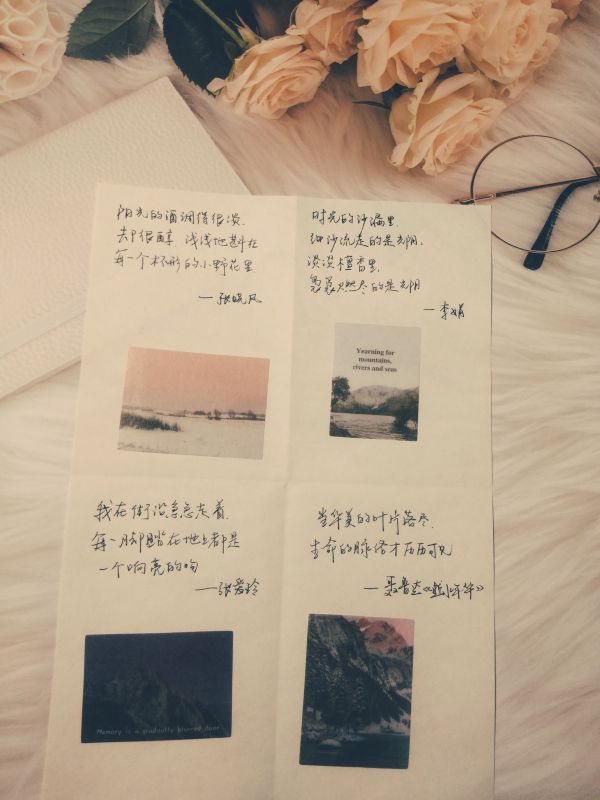 阳光的酒调得很淡、
却很醇 浅浅地斟在
每一个杯形的小野花里
—张晓风
时光的沙漏里、
细沙流走的是光阴、
淡淡檀香里、
袅袅燃尽的是光阴
—李娟
Yearning for
mountains,
rivers and seas
我在街沿急急走着、
每一脚踏在地上都是
一个响亮的吻
—张爱玲
当华美的叶片落尽、
生命的脉络才历历可见
—聂鲁达《似水年华》
Memory is a gradually blurred door